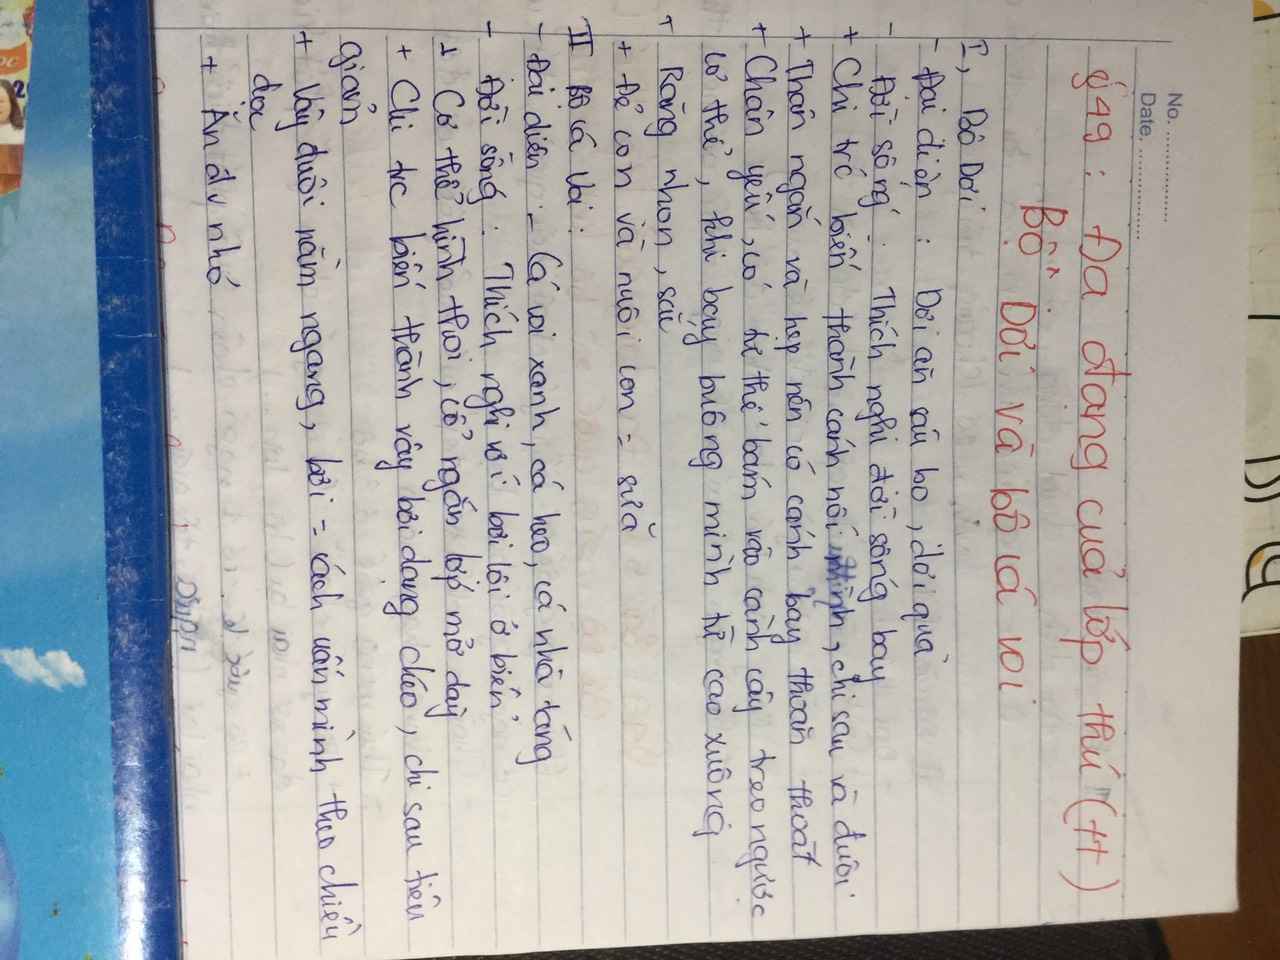 No.
Date.
§49 : Đa dạng của lớp thú (tt)
Bộ Dơi và bộ cá voi
I, Bộ Dơi
- Đại diện : Dơi ăn sâu bọ, dơi quả
- Đời sống : Thích nghi đời sống bay
+ Chi trc biến thành cánh nối mình, chi sau và đuôi
+ Thân ngắn và hẹp nên có cánh bay thoăn thoắt
+ Chân yếu, có tư thế bám vào cành cây treo ngược
cơ thể, khi bay buông mình từ cao xuống
+ Răng nhọn, sắc
+ Đẻ con và nuôi con = sữa
II Bộ cá voi :
- Đại diện - Cá voi xanh, cá heo, cá nhà táng
- Đời sống : Thích nghi với bơi lội ở biển
+ Cơ thể hình thoi, cổ ngắn lớp mỡ dày
+ Chi trc biến thành vây bơi dạng chèo, chi sau tiêu
giảm
+ Vây đuôi nằm ngang, bơi = cách uốn mình theo chiều
dọc
+ Ăn đv nhỏ